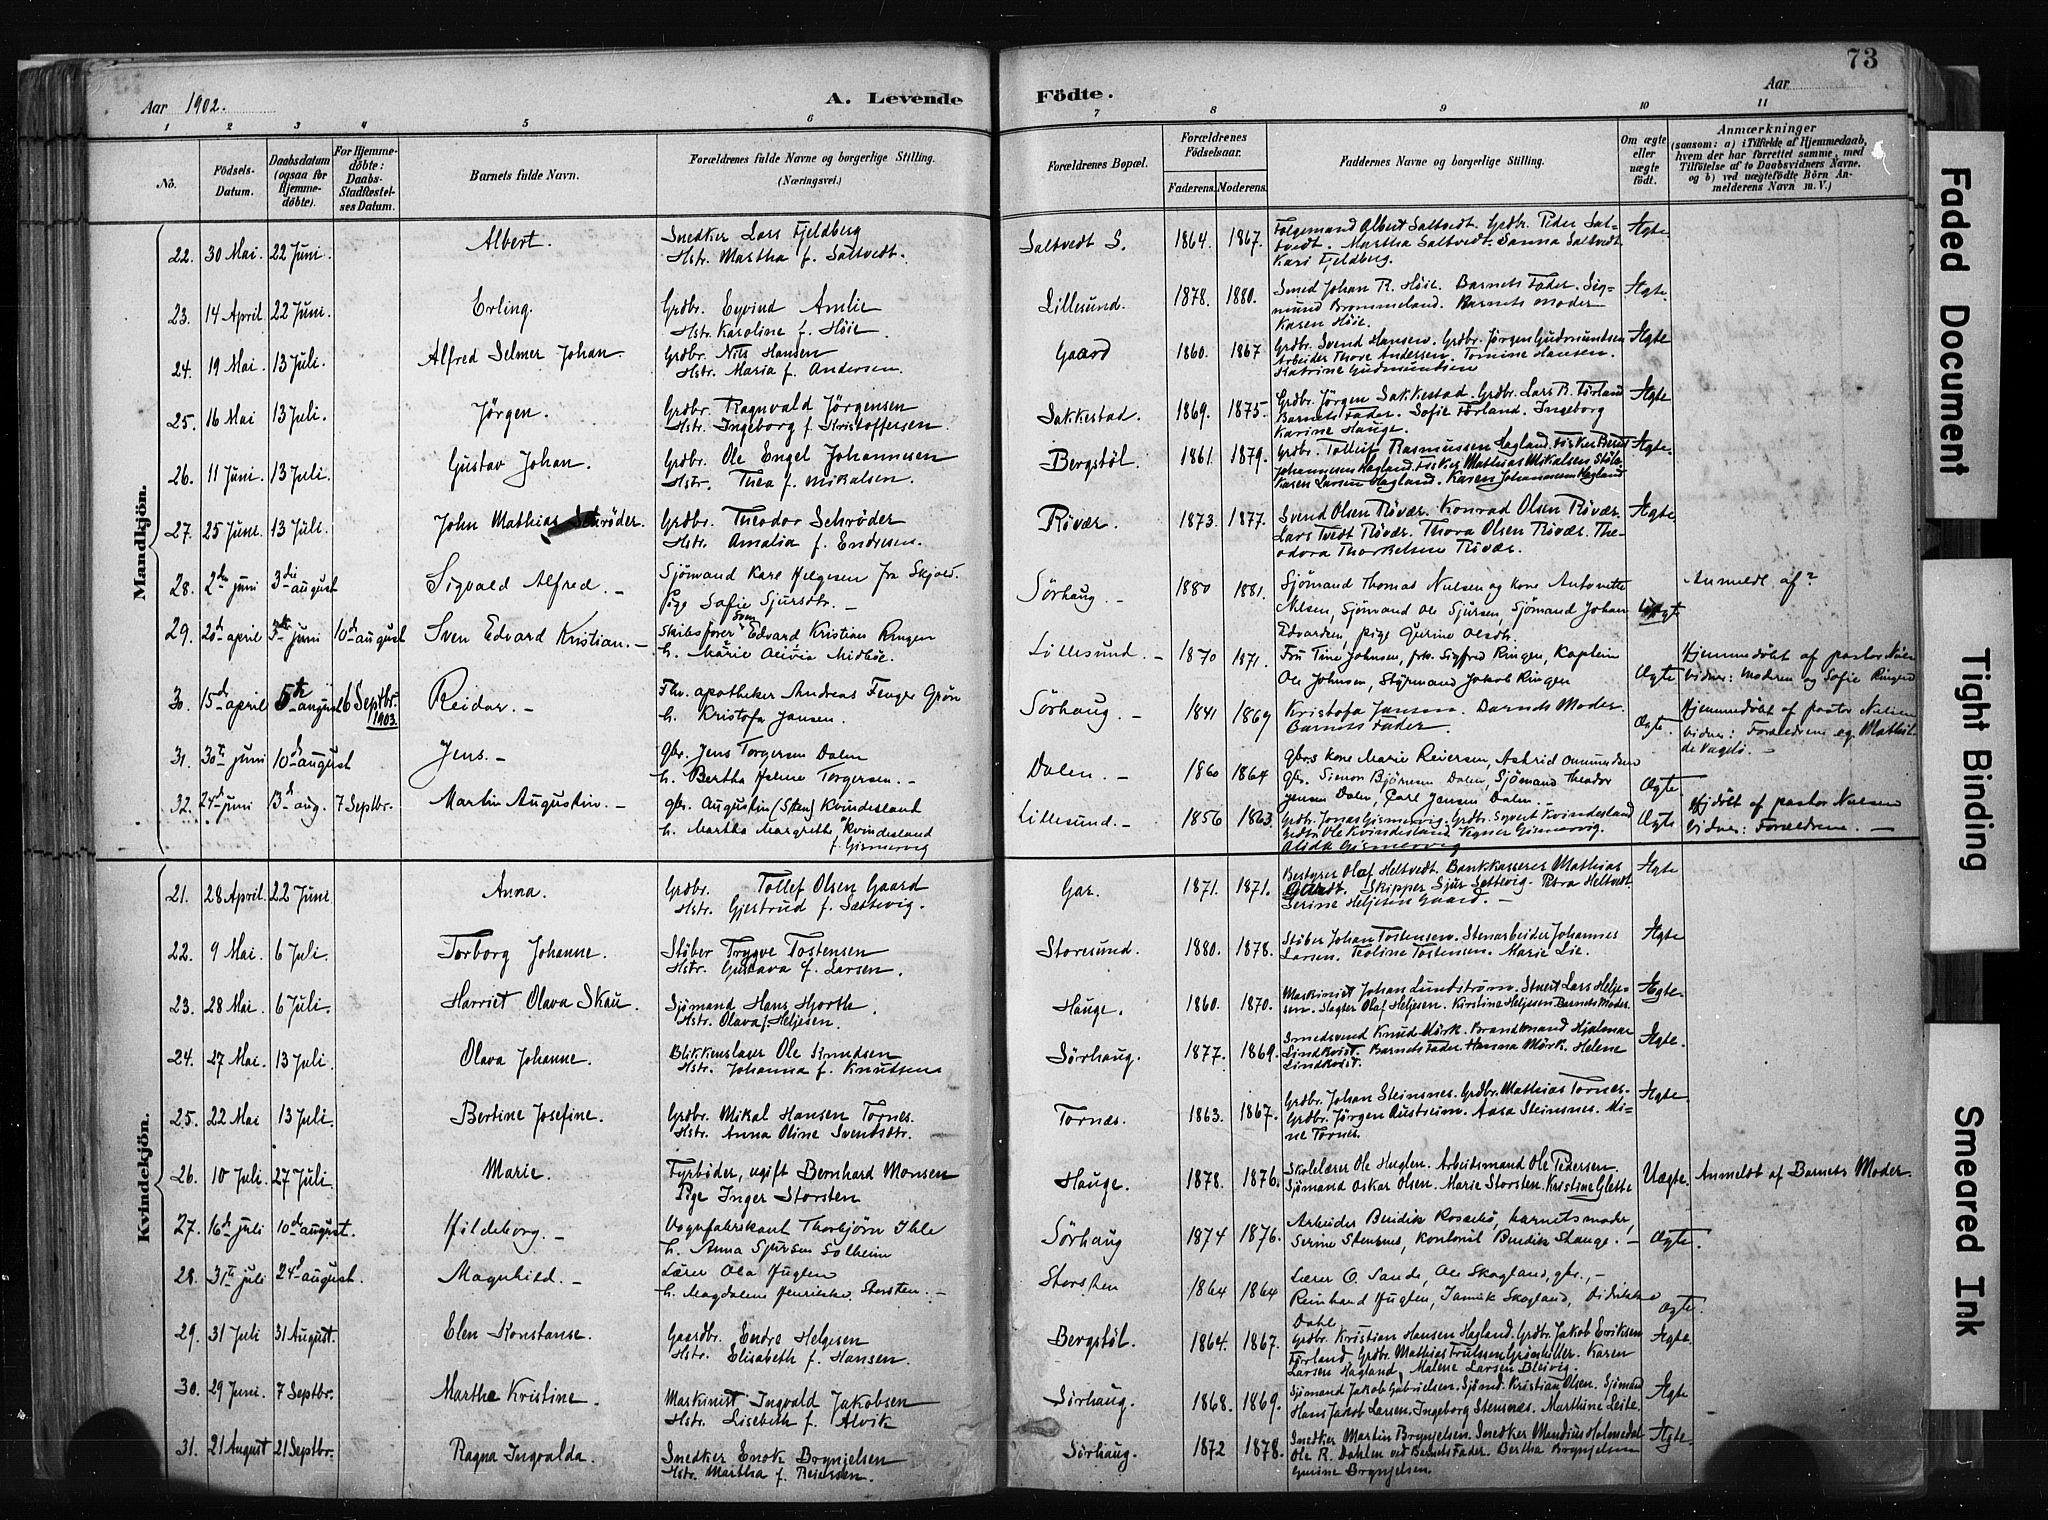 73
Aar 1902.
A. Levende Födte.
Aar
1 2 3 4 5 6 7 8 9 10 11
No.
Födsels-Datum.
Daabsdatum (ogsaa for Hjemme-döbte).
For Hjemme-döbte: Daabs-Stadfæstel-ses Datum.
Barnets fulde Navn.
Forældrenes fulde Navne og borgerlige Stilling. (Næringsvei.)
Forældrenes Bopæl.
Forældrenes Födselsaar.
Faderens. Moderens.
Faddernes Navne og borgerlige Stilling.
Om ægte eller uægte födt.
Anmærkninger (saasom: a) i Tilfælde af Hjemmedaab, hvem der har forrettet samme, med Tilföielse af to Daabsvidners Navne. og b) ved uægtefödte Börn An-melderens Navn m. V.)
Mandkjön.
22. 30 Mai. 22 Juni. Albert. Snedker Lars Fjeldberg
Hstr. Martha f. Saltvedt. Saltvedt S. 1864. 1867. Følgemand Albert Saltvedt. Grdbr. Peder Salt-
vedt. Martha Saltvedt. Sanna Saltvedt
Kari Fjeldberg. Ægte
23. 14 April. 22 Juni. Erling. Grdbr. Eyvind Amlie
Hstr. Karoline f. Höie. Lillesund. 1878. 1880. Smed Johan R. Höie. Barnets Fader. Sig-
mund Brommeland. Barnets Moder
Karen Höie. Ægte.
24. 19 Mai. 13 Juli. Alfred Selmer Johan. Grdbr. Nils Hansen
Hstr. Maria f. Andersen. Gaard 1860. 1867 Grdbr. Svend Hansen. Grdbr. Jørgen Gudmundsen
Arbeider Thore Andersen. Tomine Hansen.
Katrine Gudmundsen Ægte
25. 16 Mai 13 Juli. Jörgen. Grdbr. Ragnvald Jörgensen
Hstr. Ingeborg f. Kristoffersen. Sakkestad. 1869. 1875. Grdbr. Jörgen Sakkestad. Grdbr. Lars B. Förland
Barnets Fader. Sofie Förland. Ingeborg
Karine Hauge. Ægte
26. 11 Juni. 13 Juli. Gustav Johan. Grdbr. Ole Engel Johannesen
Hstr. Thea f. Mikalsen. Bergstöl. 1861. 1879. Grdbr. Tollef Rasmussen Hagland. Fisker Bernt
Johannesen Hagland. Fisker Mathias Mikalsen
Karen Larsen Hagland. Karen Johannesen Hagland Ægte.
27. 25 Juni. 13 Juli. John Mathias Schröder. Grdbr. Theodor Schröder
Hstr. Amalia f. Endresen. Rövær. 1873. 1877. Svend Olsen Rövær. Konrad Olsen Rövær.
Lars Tvedt Rövær. Thora Olsen Rövær. The-
odora Thorkelsen Rövær. Ægte
28. 2den juni 3die august Sigvald Alfred. Sjömand Karl Helgesen fra Skjold.
Pige Sofie Sjursdtr. Sörhaug. 1880 1881. Sjömand Thomas Nielsen og kone Antonette
Nilsen, Sjömand Ole Sjursen, Sjömand Johan
Edvardsen, pige Gurine Olsdtr. Uægte Anmeldt af?
29. 20de april juni 10de august Sven Edvard Kristian. Skibsfører Sven Edvard Kristian Ringen
h. Marie Olivia Midböe. Lillesund. 1870 1871. Fru Tine Johnsen, frk. Sigfred Ringen, Kaptein
Ole Johnsen, Styrmand Jakob Ringen Ægte Hjemmedøbt af pastor
Vidner: Moderen og Sofie Ringen
30. 15de april 5te august 6 Septbr. 1903. Reidar. Fhv. apotheker Andreas Fenger Grön
h. Kristofa Jansen. Sörhaug. 1841 1869 Kristofa Jansen. Barnets Moder.
Barnets Fader. Ægte. Hjemmedøbt af pastor Nielsen
Vidner: Forældrene og
31. 30te juni 10de august Jens. Gbr. Jens Torgersen Dalen
h. Bertha Helene Torgersen. Dalen. 1860 1864 Gbr.s kone Marie Reiersen, Astrid Omundsen
gbr. Simon Bjørnsen Dalen, Sjømand Theodor
Jensen Dalen, Carl Jansen Dalen. Ægte
32. 24de juni 13de aug. 7 Septbr. Martin Augustin. Gbr. Augustin (Sten) Kvindesland
h. Martha Margrethe Kvindesland
f. Gismervig Lillesund. 1856 1863. Grdbr. Jonas Gismervig. Grdbr. Syvert Kvindesland
Grdbr. Ole Kvindesland. Gismervig.
Alida Gismervig Ægte Hjdøbt af pastor Nielsen
Vidner: Forældrene.
Kvindekjön.
21. 28 April. 22 Juni Anna. Grdbr. Tollef Olsen Gaard
Hstr. Gjertrud f. Sættevig. Gar. 1871. 1871. Bestyrer Olaf Heltvedt. Bankkasserer Mathias
Gaard. Skipper Sjur Settevig. Petra Heltvedt.
Serine Heljesen Gaard. Ægte
22. 9 Mai. 6 Juli. Torborg Johanne. Støber Trygve Tostensen
Hstr. Gustava f. Larsen. Storesund. 1880. 1878. Støber Johan Tostensen. Stenarbeider Johannes
Larsen. Teoline Tostensen. Marie Lie. Ægte
23. 28 Mai. 6 Juli. Harriet Olava Skau. Sjømand Hans Hjorth
Hstr. Olava f. Heljesen. Hauge. 1860. 1870. Maskinist Johan Lundström. Stuert Lars Helje-
sen. Slagter Olaf Heljesen. Kirstine Heljesen. Barnets Moder. Ægte.
24. 27 Mai. 13 Juli. Olava Johanne. Blikkenslager Ole Knudsen
Hstr. Johanna f. Knutsen Sörhaug. 1877. 1869. Smedsvend Knud Mörk. Brandmand Hjalmar
Lindkvist. Barnets Fader. Hanna Mörk. Helene
Lindkvist. Ægte.
25. 22 Mai 13 Juli. Bertine Josefine. Grdbr. Mikal Hansen Tornes.
Hstr. Anna Oline Svendsdtr. Tornes. 1863. 1867. Grdbr. Johan Steinsnes. Grdbr. Mathias Tornes.
Grdbr. Jörgen Austreim. Aasa Steinsnes. Mi-
ne Tornes. Ægte.
26. 10 Juli. 27 Juli. Marie. Fyrbøder, ugift Bernhard Monsen
Pige Inger Storsten Hauge. 1878. 1876. Skolelærer Ole Huglen. Arbeidsmand Ole Pedersen.
Sjömand Oskar Olsen. Marie Storsten. Kristine Glette Uægte. Anmeldt af Barnets Moder.
27. 16de juli 10de august. Hildeborg. Vognfabrikant Thorbjörn Ihle
h. Anna Sjursen Solheim Sörhaug 1874 1876. Arbeider Bendik Rossebö, barnets moder,
Serine Stensnes, kontorist Bendik Stange. Ægte.
28. 31te juli 24de august. Magnhild. Lærer Ola Huglen
h. Magdalene Henrikke Storsten. Storsten 1864 1864 Lærer O. Sande, Ole Skogland, gbr.,
Reinhard Huglen, Jannik Skogland, Didrikke
Dahl. Ægte.
29. 31 Juli 31 August. Elen Konstanse. Gaardbr. Endre Helgesen
Hstr. Elisabeth f. Hansen. Bergstöl. 1864. 1867. Grdbr. Kristian Hansen Hagland. Grdbr. Jakob Eriksen
Förland. Grdbr. Mathias Trulssen Grönshiller. Karen
Larsen Hagland. Malene Larsen Bleivig. Ægte.
30. 29 Juni. 7 Septbr. Martha Kristine. Maskinist Ingvald Jakobsen
Hstr. Lisebeth f. Alvik Sörhaug. 1868. 1869. Sjömand Jakob Gabrielsen. Sjömd. Kristian Olsen. Sjömand
Hans Jakob Larsen. Ingeborg Stensnes. Marthine Leite. Ægte
31. 21 August 21 Septbr. Ragna Ingvalda. Snedker Enok Brynjelsen
Hstr. Martha f. Reiersen. Sörhaug. 1872 1878. Snedker Martin Brynjelsen. Snedker Mandius Holmedal.
Ole R. Dahlen ved Barnets Fader. Bertha Brynjelsen
Gurine Brynjelsen. Ægte.
Faded Document
Tight Binding
Smeared Ink